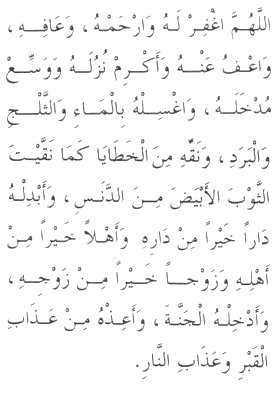 اللَّهُمَّ اغْفِرْ لَهُ وَارْحَمْهُ، وَعَافِهِ،
وَاعْفُ عَنْهُ وَأَكْرِمْ نُزُلَهُ وَوَسِّعْ
مُدْخَلَهُ، وَاغْسِلْهُ بِالْمَاءِ وَالثَّلْجِ
وَالْبَرَدِ، وَنَقِّهِ مِنَ الْخَطَايَا كَمَا نَقَّيْتَ
الثَّوْبَ الأَبْيَضَ مِنَ الدَّنَسِ، وَأَبْدِلْهُ
دَاراً خَيْراً مِنْ دَارِهِ وَأَهْلاً خَيْراً مِنْ
أَهْلِهِ وَزَوْجاً خَيْراً مِنْ زَوْجِهِ،
وَأَدْخِلْهُ الْجَنَّةَ، وَأَعِذْهُ مِنْ عَذَابِ
الْقَبْرِ وَعَذَابِ النَّارِ.